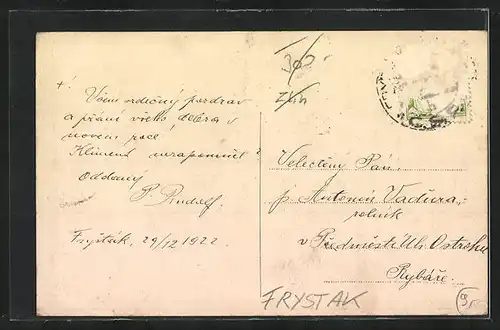 +
Všem srdečný pozdrav
a přání všeho dobra v
novém roce!
Kliment nezapomněl?
oddaný
P. Rudolf.
Fryšták, 29/12 1922
300-
Zlín
Velectěný Pán
p. Antonín Vaďura,
rolník
v Předměstí Uh. Ostrohu
Rybáře.
FRYSTAK